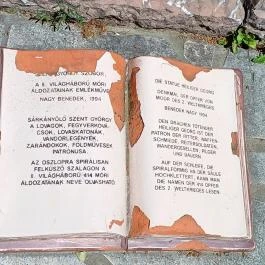 SZENT GYÖRGY SZOBOR,
A II. VILÁGHÁBORÚ MÓRI
ÁLDOZATAINAK EMLÉKMŰVE
NAGY BENEDEK, 1994
SÁRKÁNYÖLŐ SZENT GYÖRGY
A LOVAGOK, FEGYVERKOVÁ-
CSOK, LOVASKATONÁK,
VÁNDORLEGÉNYEK,
ZARÁNDOKOK, FÖLDMŰVESEK
PATRÓNUSA.
AZ OSZLOPRA SPIRÁLISAN
FELKÚSZÓ SZALAGON A
II. VILÁGHÁBORÚ 414 MÓRI
ÁLDOZATÁNAK NEVE OLVASHATÓ.
DIE STATUE HEILIGER GEORG
DENKMAL DER OPFER VON
MOOR DES 2. WELTKRIEGES
BENEDEK NAGY 1994
DEN DRACHEN TÖTENDER
HEILIGER GEORG IST DER
PATRON DER RITTER, WAFFEN-
SCHMIEDE, REITERSOLDATEN,
WANDERGESELLEN, PILGER
UND BAUERN
AUF DER SCHLEIFE, DIE
SPIRALFÖRMIG AN DER SÄULE
HOCHKLETTERT, KANN MAN
DIE NAMEN DER 414 OPFER
DES 2. WELTKRIEGES LESEN